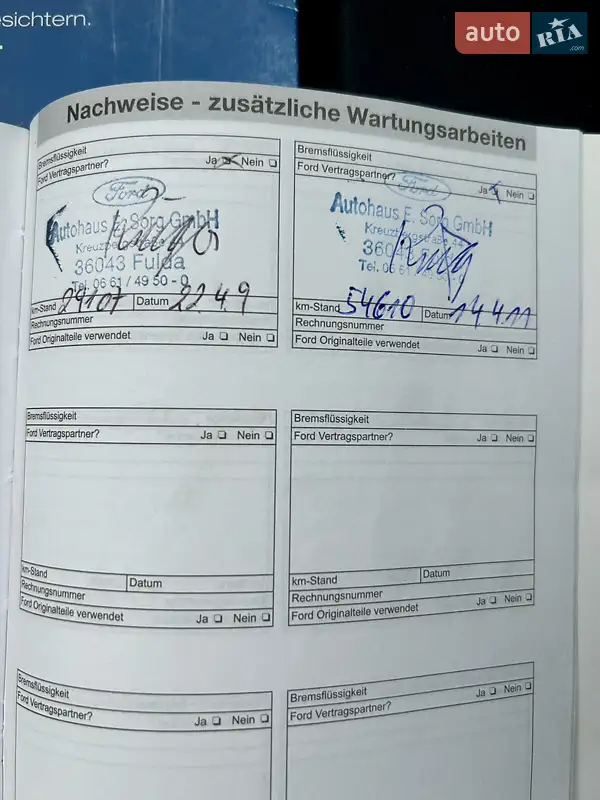 esichtern.
auto RIA .com
Nachweise - zusätzliche Wartungsarbeiten
Bremsflüssigkeit
Ford Vertragspartner? Ja Nein
Ford
Autohaus E. Sorg GmbH
36043 Fulda
Tel. 06 61 / 49 50 - 0
km-Stand 29107 Datum 22.4.9
Rechnungsnummer
Ford Originalteile verwendet Ja Nein
Bremsflüssigkeit
Ford Vertragspartner? Ja Nein
Ford
Autohaus E. Sorg GmbH
Kreuzbergstraße 44
Tel. 06 61 / 49 50 - 0
km-Stand 54610 Datum 14.4.11
Rechnungsnummer
Ford Originalteile verwendet Ja Nein
Bremsflüssigkeit
Ford Vertragspartner? Ja Nein
km-Stand Datum
Rechnungsnummer
Ford Originalteile verwendet Ja Nein
Bremsflüssigkeit
Ford Vertragspartner? Ja Nein
km-Stand Datum
Rechnungsnummer
Ford Originalteile verwendet Ja Nein
Bremsflüssigkeit
Ford Vertragspartner? Ja Nein
Bremsflüssigkeit
Ford Vertragspartner? Ja Nein